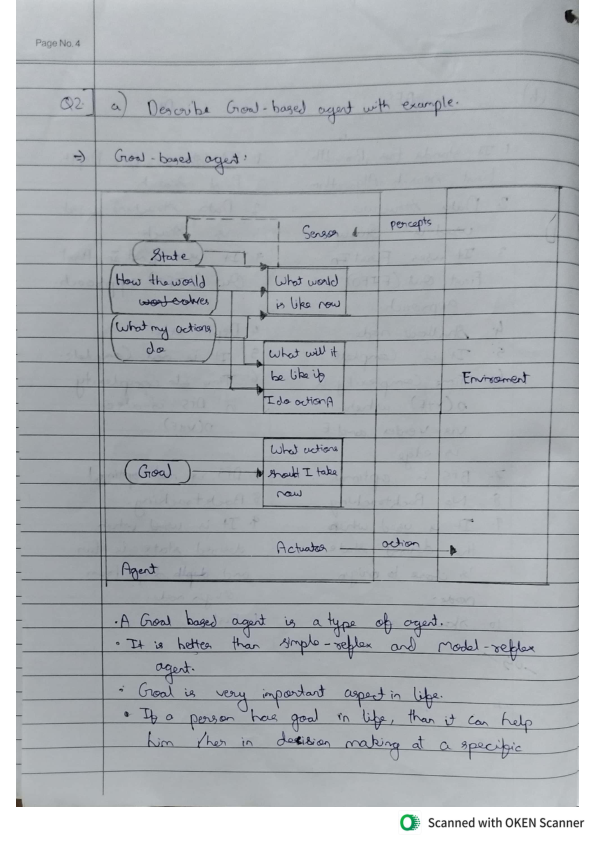 Page No. 4
Q2] a) Describe Goal-based agent with example.
=> Goal-based agent:
Sensor percepts
State
How the world
evolves
What my actions
do
What world
is like now
What will it
be like if
I do action A
Enviroment
What actions
should I take
now
Goal
Actuator action
Agent
· A Goal based agent is a type of agent.
· It is better than simple-reflex and model-reflex
agent.
· Goal is very important aspect in life.
· If a person has goal in life, than it can help
him /her in decision making at a specific
Scanned with OKEN Scanner